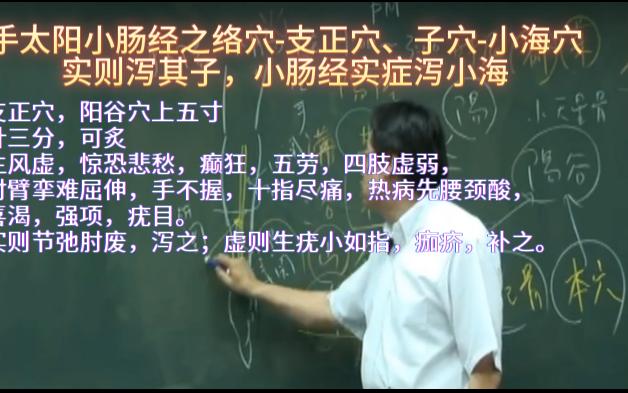 手太阳小肠经之络穴-支正穴、子穴-小海穴
实则泻其子，小肠经实症泻小海
支正穴，阳谷穴上五寸
针三分，可炙
主风虚，惊恐悲愁，癫狂，五劳，四肢虚弱，
肘臂挛难屈伸，手不握，十指尽痛，热病先腰颈酸，
喜渴，强项，疣目。
实则节弛肘废，泻之；虚则生疣小如指，痂疥，补之。
PM
陽
陽谷
本穴